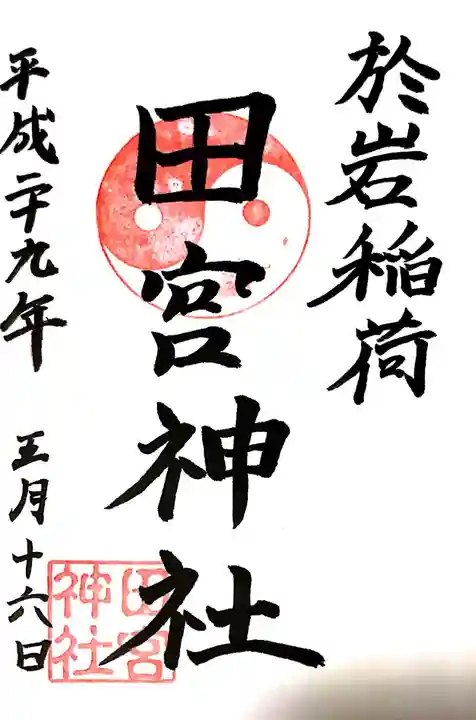 於岩稲荷
田宮神社
平成二十九年 五月十六日
田宮
神社